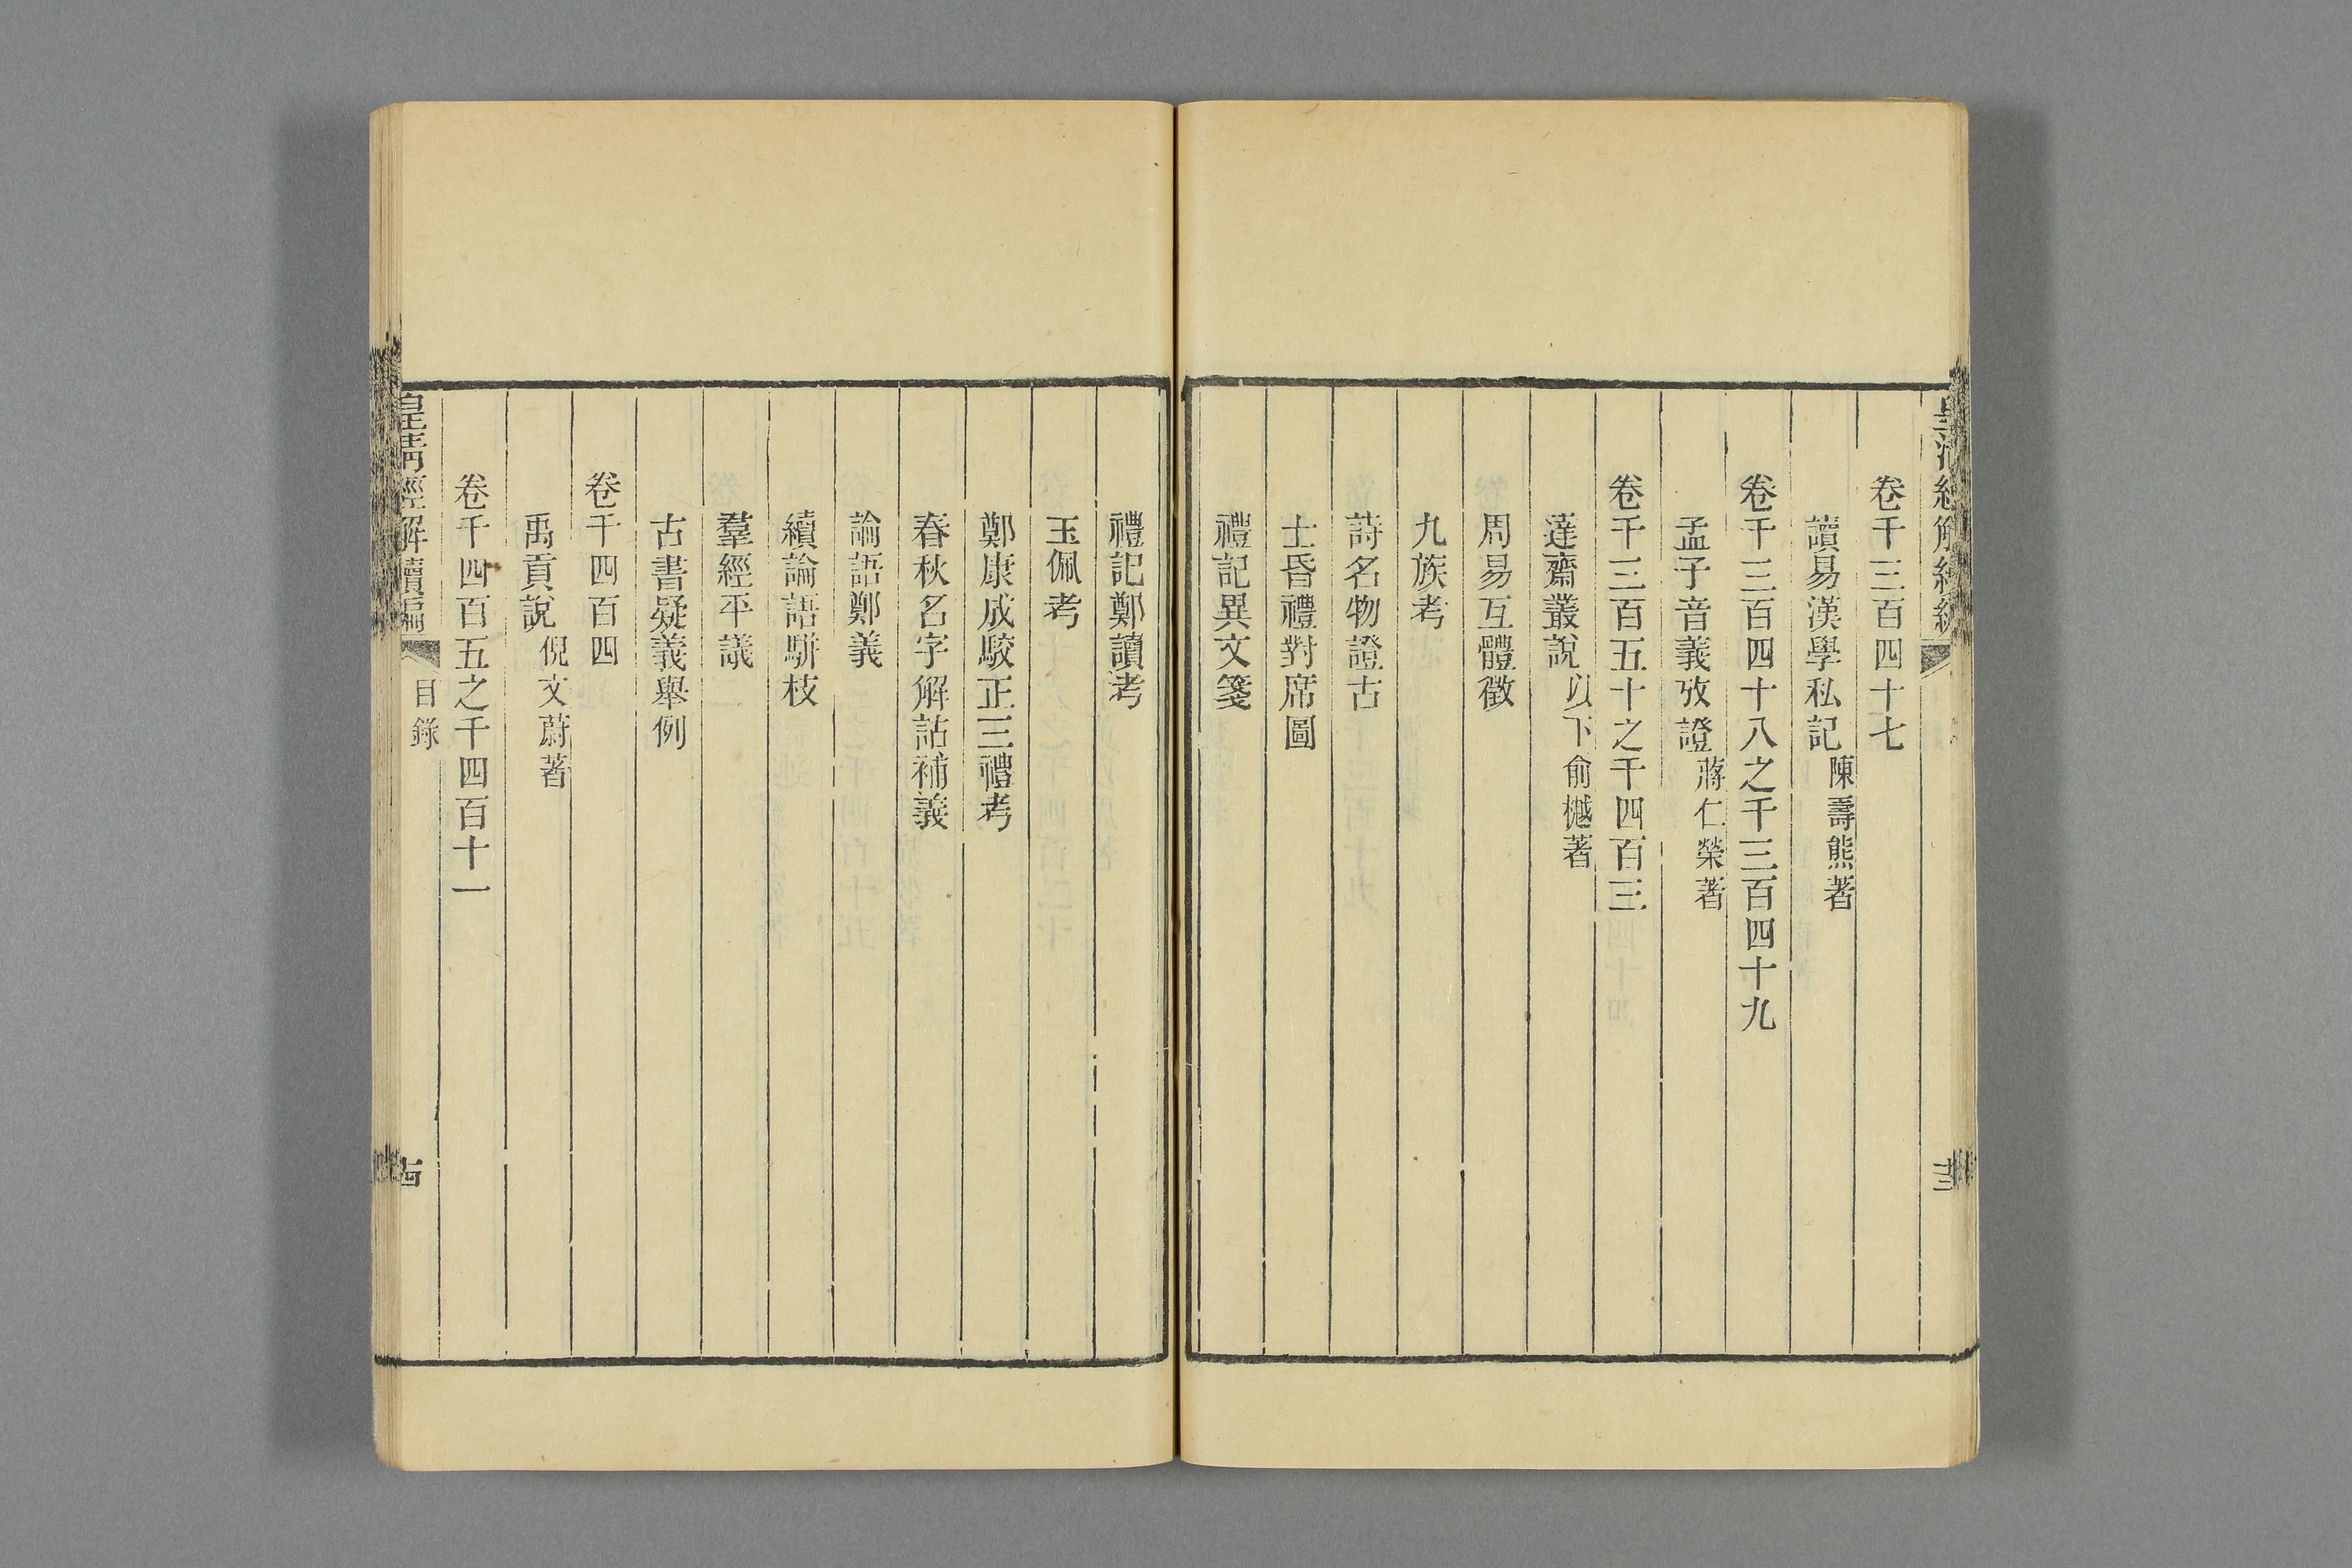 卷千三百四十七
讀易漢學私記陳壽熊著
卷千三百四十八之千三百四十九
孟子音義攷證蔣仁榮著
卷千三百五十之千四百三
達齋叢說以下俞樾著
周易互體徵
九族考
詩名物證古
士昏禮對席圖
禮記異文箋
禮記鄭讀考
玉佩考
鄭康成駁正三禮考
春秋名字解詁補義
論語鄭義
續論語駢枝
羣經平議
古書疑義舉例
卷千四百四
禹貢說倪文蔚著
卷千四百五之千四百十一
皇清經解續編
目錄
十四